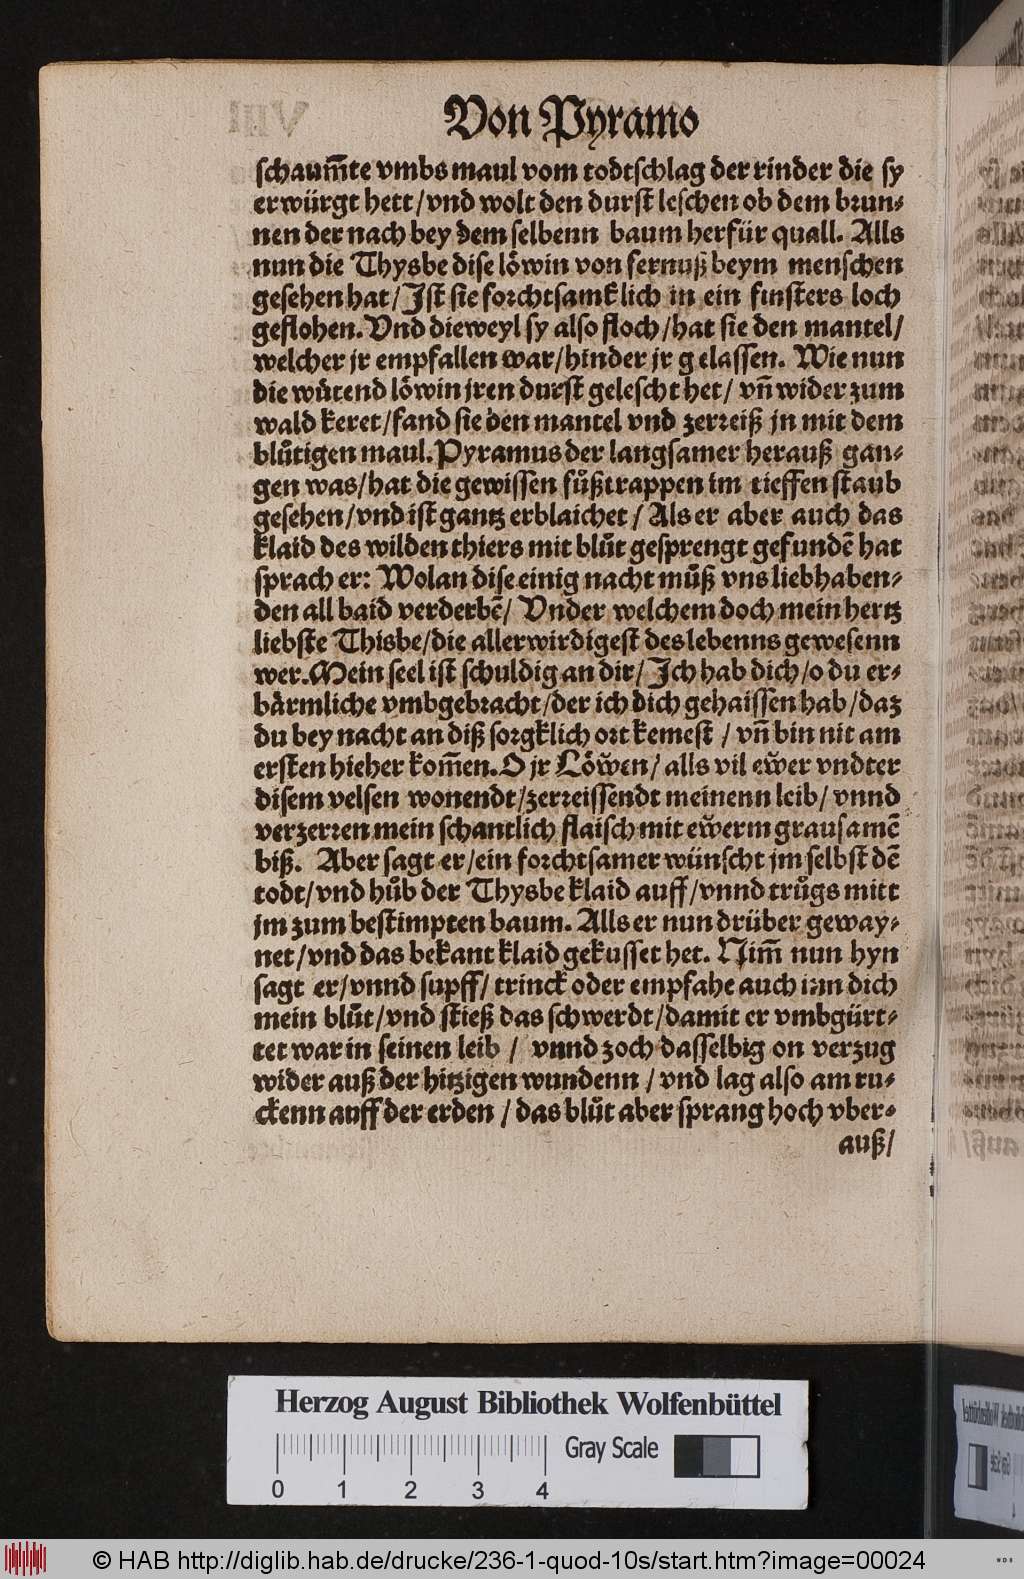 Von Pyramo
schaum̄te vmbs maul vom todtschlag der rinder die sy
erwürgt hett/vnd wolt den durst leschen ob dem brun-
nen der nach bey dem selbenn baum herfür quall. Alls
nun die Thysbe dise loͤwin von fernuß beym menschen
gesehen hat/Ist sie forchtsamklich in ein finsters loch
geflohen. Vnd dieweyl sy also floch/hat sie den mantel/
welcher jr empfallen war/hinder jr gelassen. Wie nun
die wuͤtend loͤwin jren durst gelescht het/ vn̄ wider zum
wald keret/fand sie den mantel vnd zerreiß jn mit dem
bluͦtigen maul. Pyramus der langsamer herauß gan-
gen was/hat die gewissen fuͦßtrappen im tieffen staub
gesehen/vnd ist gantz erblaichet/ Als er aber auch das
klaid des wilden thiers mit bluͦt gesprengt gefundē hat
sprach er: Wolan dise einig nacht muͦß vns liebhaben-
den all baid verderbē/ Vnder welchem doch mein hertz
liebste Thisbe/die allerwirdigest des lebenns gewesenn
wer. Mein seel ist schuldig an dir/ Ich hab dich/o du er-
bärmliche vmbgebracht/der ich dich gehaissen hab/daz
du bey nacht an diß sorgklich ort kemest/ vn̄ bin nit am
ersten hieher kom̄en. O jr Loͤwen/ alls vil ew̆er vndter
disem velsen wonendt/zerreissendt meinenn leib/ vnnd
verzerren mein schantlich flaisch mit ew̆erm grausamē
biß. Aber sagt er/ein forchtsamer wünscht jm selbst dē
todt/vnd huͦb der Thysbe klaid auff/vnnd truͦgs mitt
jm zum bestimpten baum. Alls er nun drüber geway-
net/vnd das bekant klaid gekusset het. Nim̄ nun hyn
sagt er/vnnd supff/ trinck oder empfahe auch inn dich
mein bluͦt/vnd stieß das schwerdt/damit er vmbgürt-
tet war in seinen leib/ vnnd zoch dasselbig on verzug
wider auß der hitzigen wundenn/vnd lag also am ru-
ckenn auff der erden/das bluͦt aber sprang hoch vber-
auß/
Herzog August Bibliothek Wolfenbüttel
Gray Scale
0 1 2 3 4
© HAB http://diglib.hab.de/drucke/236-1-quod-10s/start.htm?image=00024